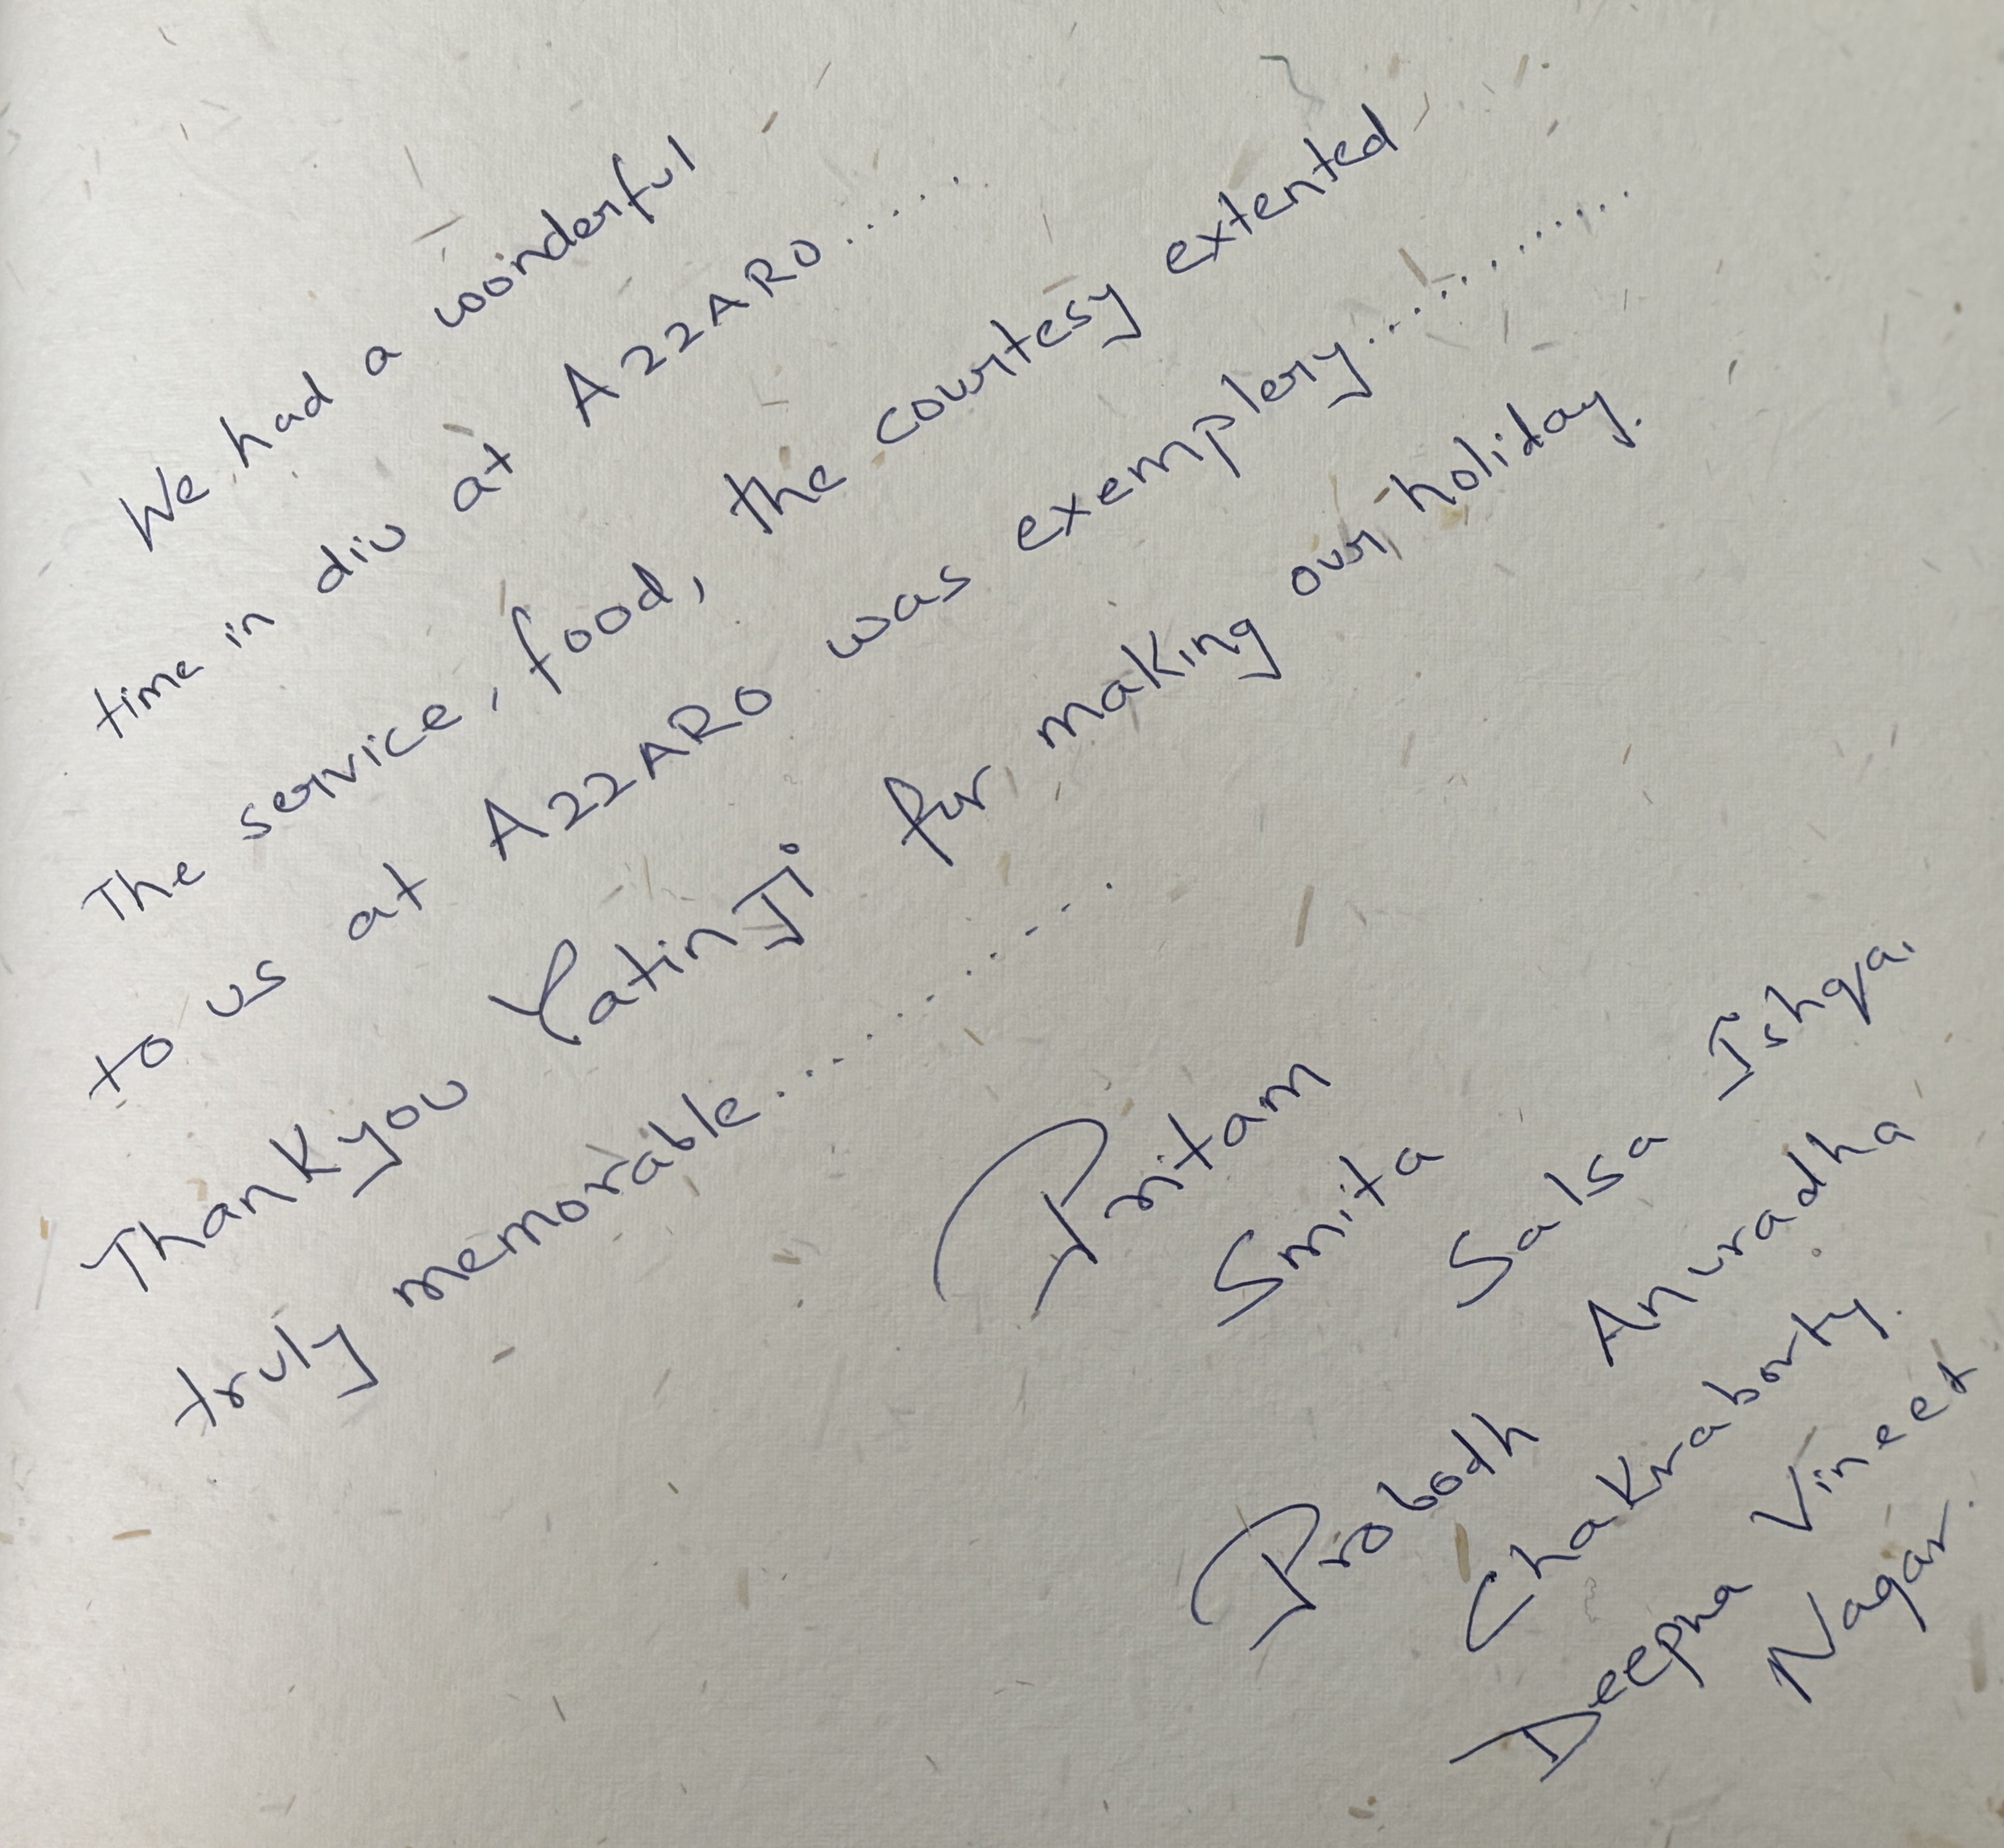 We had a wonderful
time in diu at AZZARO......
The service, food, the courtesy extented
to us at AZZARO was exemplery............
Thank you YatinJi for making our holiday.
truly memorable............
Pritam
Smita
Salsa Ishqa.
Probodh Anuradha
Chakraborty.
Deepna Vineet
Nagar.